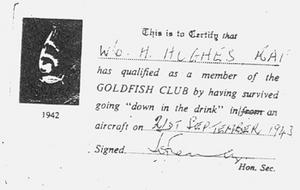 This is to Certify that
W/O. H. HUGHES RAF
has qualified as a member of the
GOLDFISH CLUB by having survived
going "down in the drink" in/from an
aircraft on 21ST SEPTEMBER 1943
Signed.
Hon. Sec.
1942